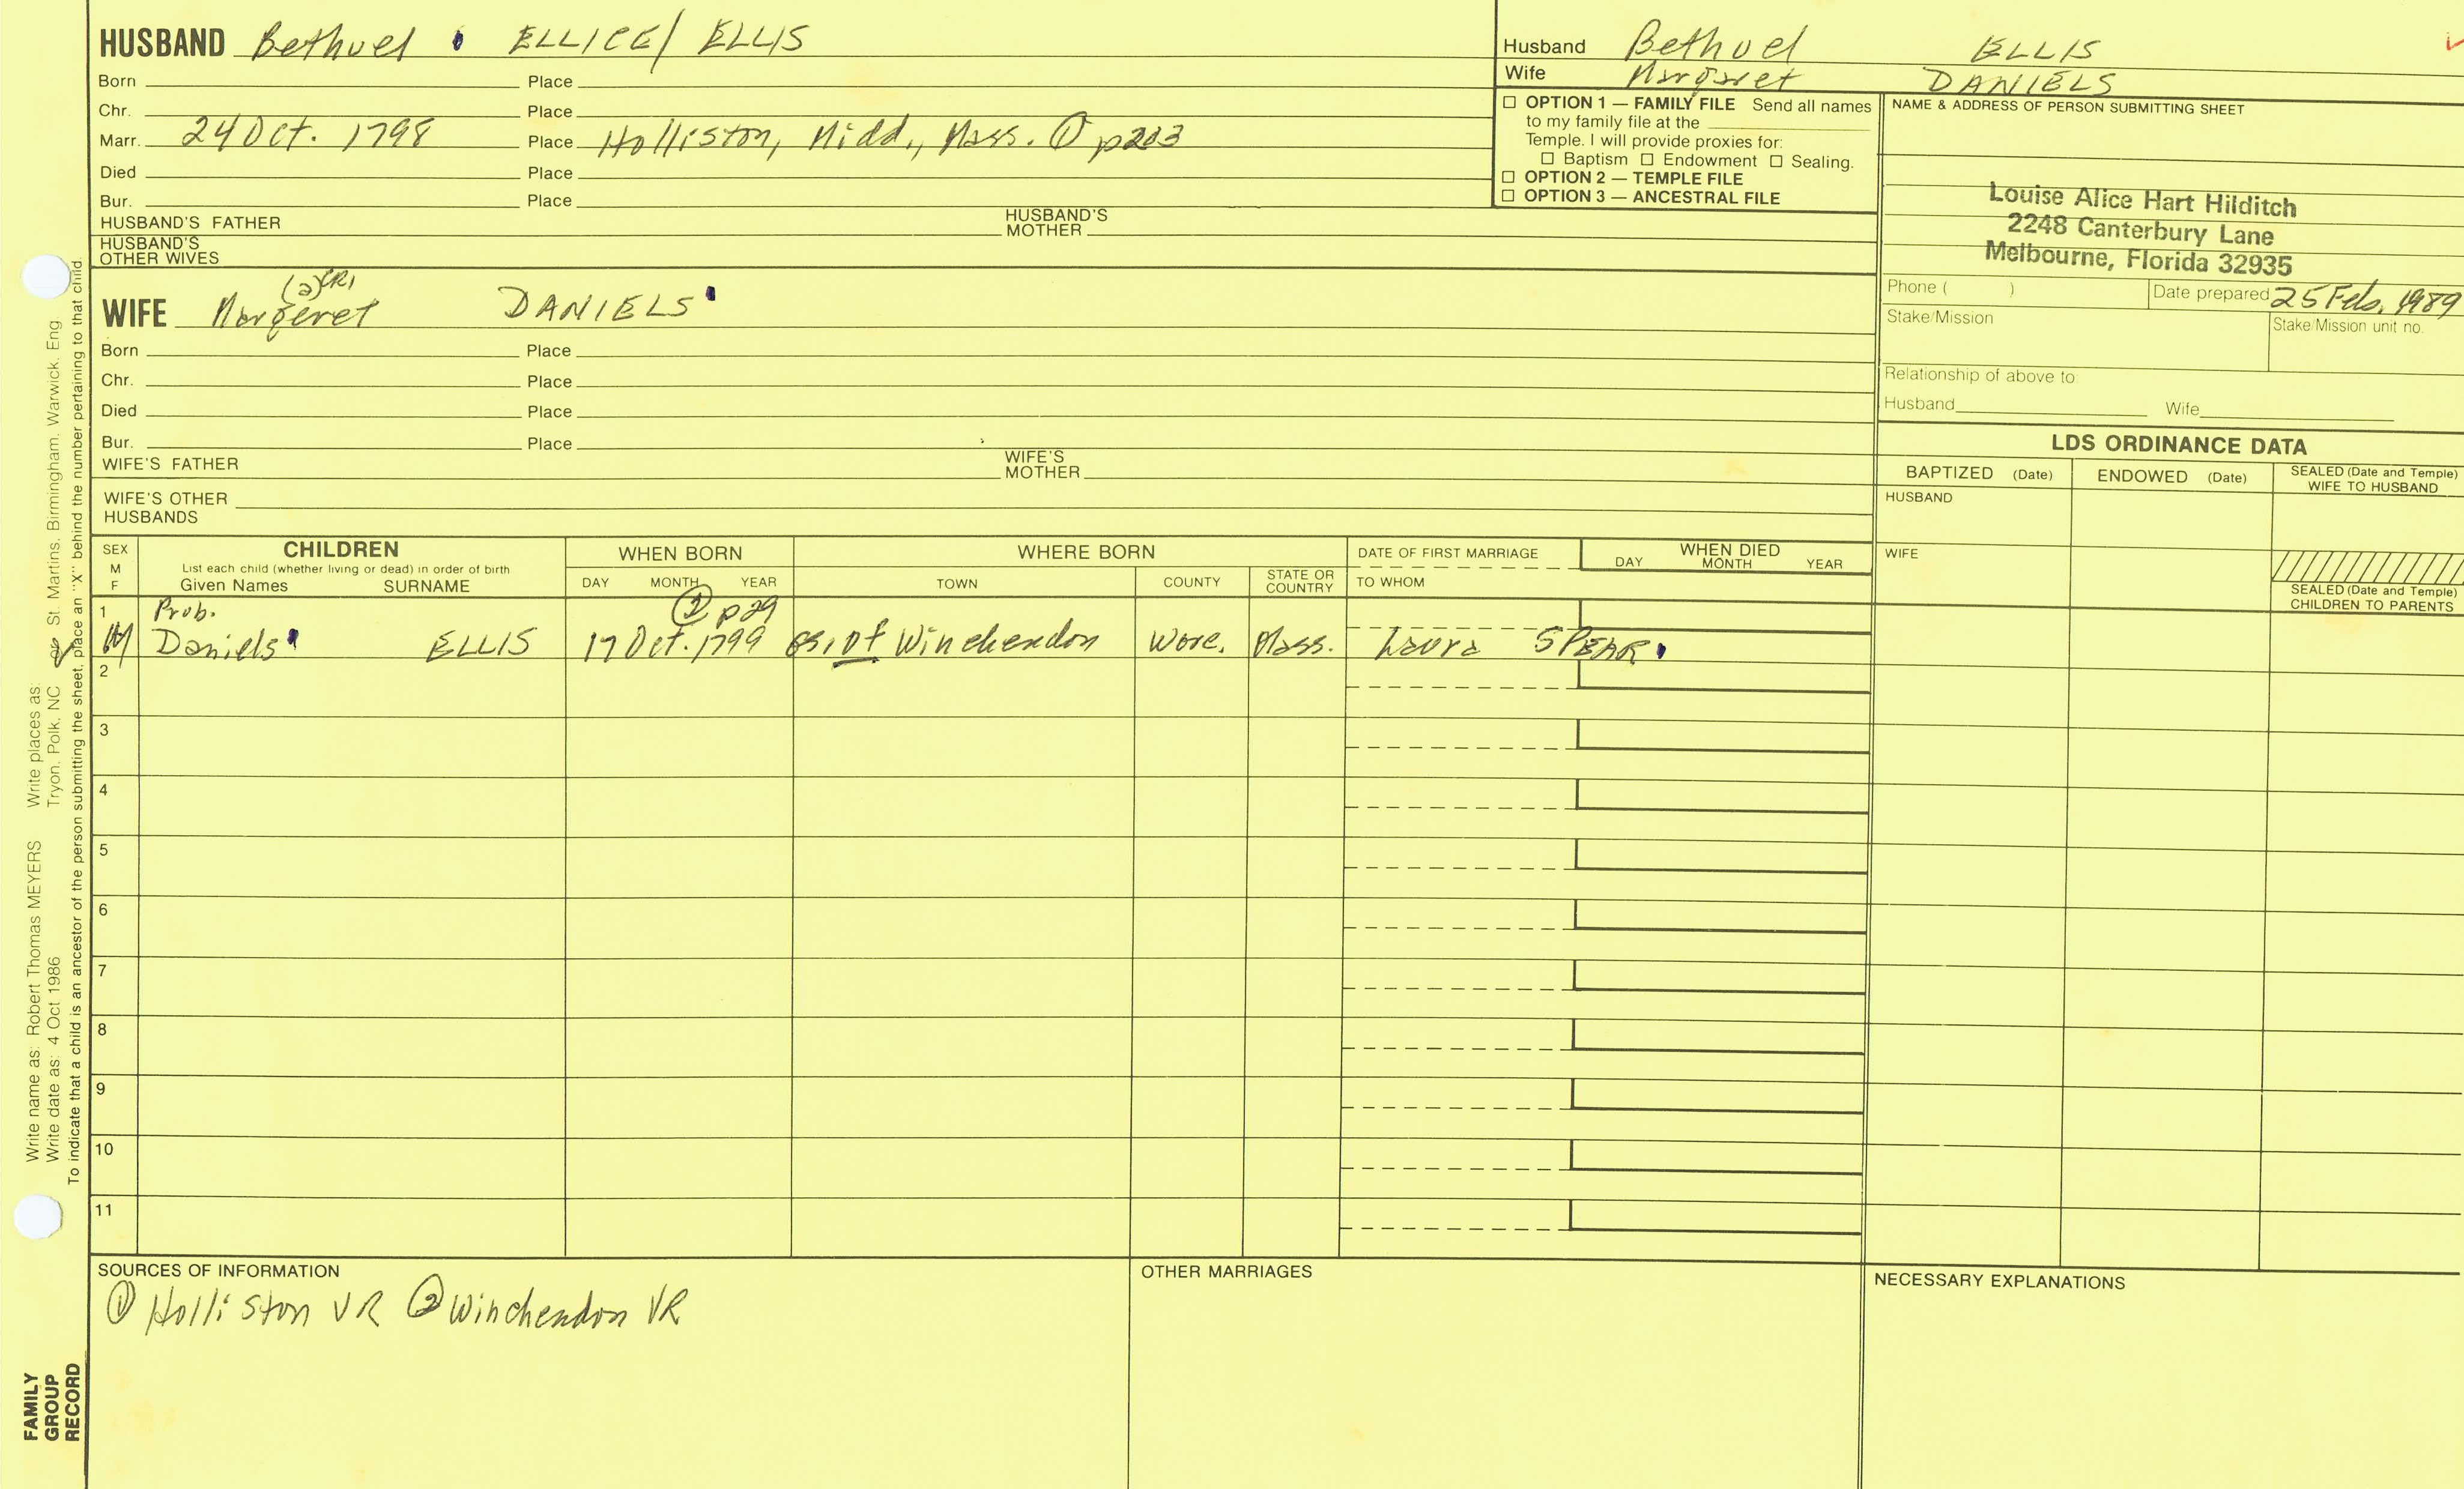 HUSBAND Bethuel ELLICE/ ELLIS
Born Place
Chr. Place
Marr. 24 Oct. 1798 Place Holliston, Midd., Mass. ① p283
Died Place
Bur. Place
HUSBAND'S FATHER HUSBAND'S MOTHER
HUSBAND'S OTHER WIVES
Husband Bethuel ELLIS
Wife Margaret DANIELS
☐ OPTION 1 — FAMILY FILE Send all names
to my family file at the
Temple. I will provide proxies for:
☐ Baptism ☐ Endowment ☐ Sealing.
☐ OPTION 2 — TEMPLE FILE
☐ OPTION 3 — ANCESTRAL FILE
NAME & ADDRESS OF PERSON SUBMITTING SHEET
Louise Alice Hart Hilditch
2248 Canterbury Lane
Melbourne, Florida 32935
Phone ( ) Date prepared 25 Feb. 1989
Stake/Mission Stake/Mission unit no.
Relationship of above to
Husband Wife
(a)(R)
WIFE Margeret DANIELS
Born Place
Chr. Place
Died Place
Bur. Place
WIFE'S FATHER WIFE'S MOTHER
WIFE'S OTHER HUSBANDS
LDS ORDINANCE DATA
BAPTIZED (Date) ENDOWED (Date) SEALED (Date and Temple) WIFE TO HUSBAND
HUSBAND
WIFE
SEALED (Date and Temple) CHILDREN TO PARENTS
SEX M F
CHILDREN
List each child (whether living or dead) in order of birth
Given Names SURNAME
WHEN BORN
DAY MONTH YEAR
WHERE BORN
TOWN COUNTY STATE OR COUNTRY
DATE OF FIRST MARRIAGE
TO WHOM
WHEN DIED
DAY MONTH YEAR
1 Prob. ② p29
M Daniels ELLIS 17 Oct. 1799 of Winchendon Worc. Mass. Laura SPEAR
2
3
4
5
6
7
8
9
10
11
SOURCES OF INFORMATION
① Holliston VR ② Winchendon VR
OTHER MARRIAGES
NECESSARY EXPLANATIONS
Write name as: Robert Thomas MEYERS Write places as:
Write date as: 4 Oct 1986 Tryon, Polk, NC St. Martins, Birmingham, Warwick, Eng
To indicate that a child is an ancestor of the person submitting the sheet, place an "X" behind the number pertaining to that child.
FAMILY
GROUP
RECORD